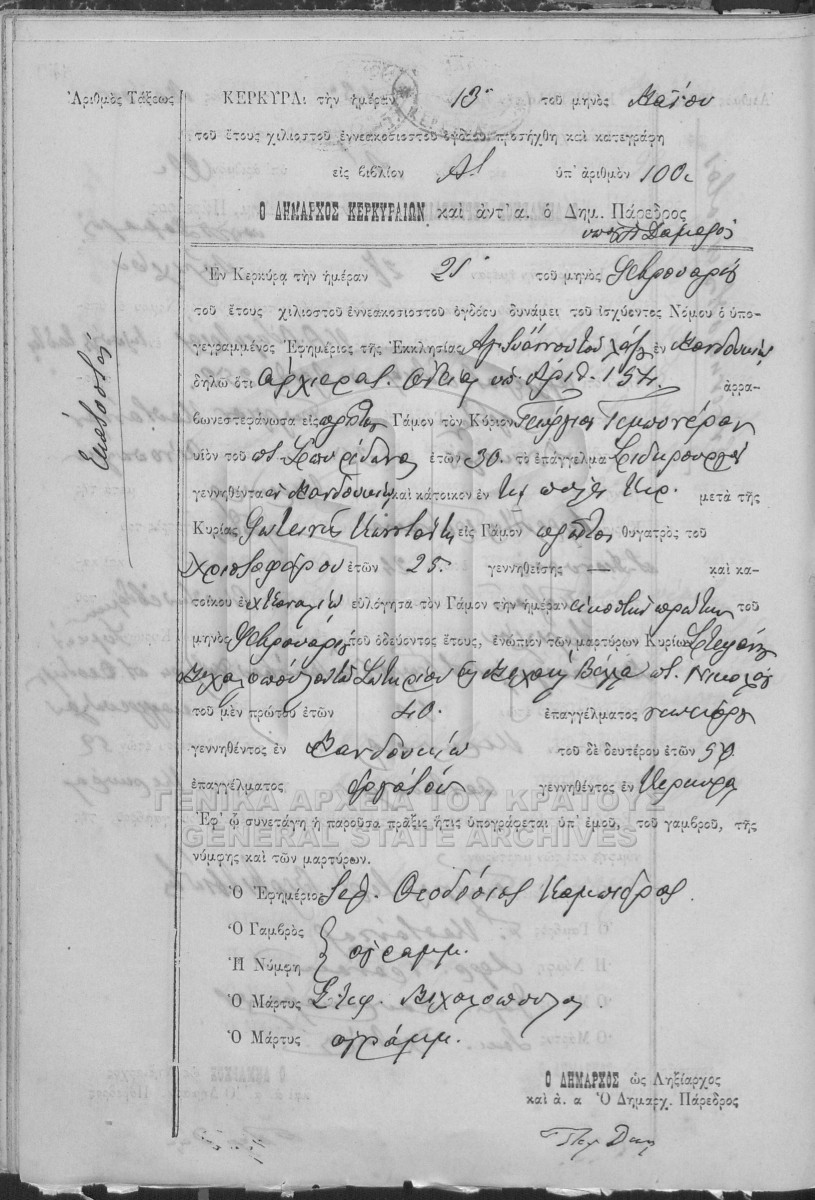 Ἀριθμὸς Τάξεως
Ἑκατοστὸς
ΚΕΡΚΥΡΑ: τὴν ἡμέραν 13 τοῦ μηνὸς Μαΐου
τοῦ ἔτους χιλιοστοῦ ἐννεακοσιοστοῦ ὀγδόου προσήχθη καὶ κατεγράφη
εἰς βιβλίον Α ὑπ' ἀριθμὸν 100
Ο ΔΗΜΑΡΧΟΣ ΚΕΡΚΥΡΑΙΩΝ καὶ ἀντ' α. ὁ Δημ. Πάρεδρος
Ἐν Κερκύρᾳ τὴν ἡμέραν 21 τοῦ μηνὸς Φεβρουαρίου
τοῦ ἔτους χιλιοστοῦ ἐννεακοσιοστοῦ ὀγδόου δυνάμει τοῦ ἰσχύοντος Νόμου ὁ ὑπο-
γεγραμμένος Ἐφημέριος τῆς Ἐκκλησίας Ἁγ. Ἰωάννου τοῦ ἐν Μανδουκίῳ
δηλῶ ὅτι ἀρχιερατ. ἀδείᾳ ὑπ' ἀριθ. 154. ἀρρα-
βωνεστεφάνωσα εἰς πρῶτον Γάμον τὸν Κύριον Γεώργιον Τεμπονέραν
υἱὸν τοῦ π. Σπυρίδωνος ἐτῶν 30. τὸ ἐπάγγελμα Σιδηρουργὸν
γεννηθέντα ἐν Μανδουκίῳ καὶ κάτοικον ἐν τῇ πόλει Κερ. μετὰ τῆς
Κυρίας Φωτεινῆς εἰς Γάμον πρῶτον θυγατρὸς τοῦ
Χριστοφόρου ἐτῶν 25. γεννηθείσης — καὶ κα-
τοίκου ἐν εὐλόγησα τὸν Γάμον τὴν ἡμέραν εἰκοστὴν πρώτην τοῦ
μηνὸς Φεβρουαρίου τοῦ ὁδεύοντος ἔτους, ἐνώπιον τῶν μαρτύρων Κυρίων Στεφάνου
Μιχαλοπούλου τοῦ Σωτηρίου Βέλλα π. Νικολάου
τοῦ μὲν πρώτου ἐτῶν 40. ἐπαγγέλματος
γεννηθέντος ἐν Μανδουκίῳ τοῦ δὲ δευτέρου ἐτῶν
ἐπαγγέλματος ἐργάτου γεννηθέντος ἐν Κερκύρᾳ
ΓΕΝΙΚΑ ΑΡΧΕΙΑ ΤΟΥ ΚΡΑΤΟΥΣ
GENERAL STATE ARCHIVES
Ἐφ' ᾧ συνετάγη ἡ παροῦσα πρᾶξις ἥτις ὑπογράφεται ὑπ' ἐμοῦ, τοῦ γαμβροῦ, τῆς
νύμφης καὶ τῶν μαρτύρων.
Ὁ Ἐφημέριος Θεοδόσιος
Ὁ Γαμβρὸς
Ἡ Νύμφη ἀγράμμ.
Ὁ Μάρτυς Στεφ. Μιχαλόπουλος
Ὁ Μάρτυς ἀγράμμ.
Ο ΔΗΜΑΡΧΟΣ ὡς Ληξίαρχος
καὶ ἀ. α Ὁ Δημαρχ. Πάρεδρος